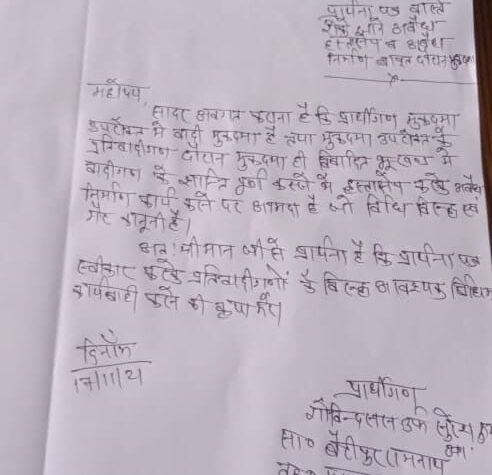 प्रार्थना पत्र वास्ते
रोके जाने अवैध
हस्तक्षेप व अवैध
निर्माण बावत दौरान मुकदमा
महोदय,
सादर अवगत कराना है कि प्रार्थीगण मुकदमा
उपरोक्त में वादी मुकदमा है तथा मुकदमा उपरोक्त के
प्रतिवादीगण दौरान मुकदमा ही विवादित भूखण्ड में
वादीगण के शान्ति पूर्ण कब्जे में हस्तक्षेप करके अवैध
निर्माण कार्य करने पर आमदा है जो विधि विरुद्ध एवं
गैर कानूनी है।
अतः श्रीमान जी से प्रार्थना है कि प्रार्थना पत्र
स्वीकार करके प्रतिवादीगणों के विरुद्ध आवश्यक विधिक
कार्यवाही करने की कृपा करें।
दिनाँक
17/11/21
प्रार्थीगण
गोविन्दलाल उर्फ
सा०